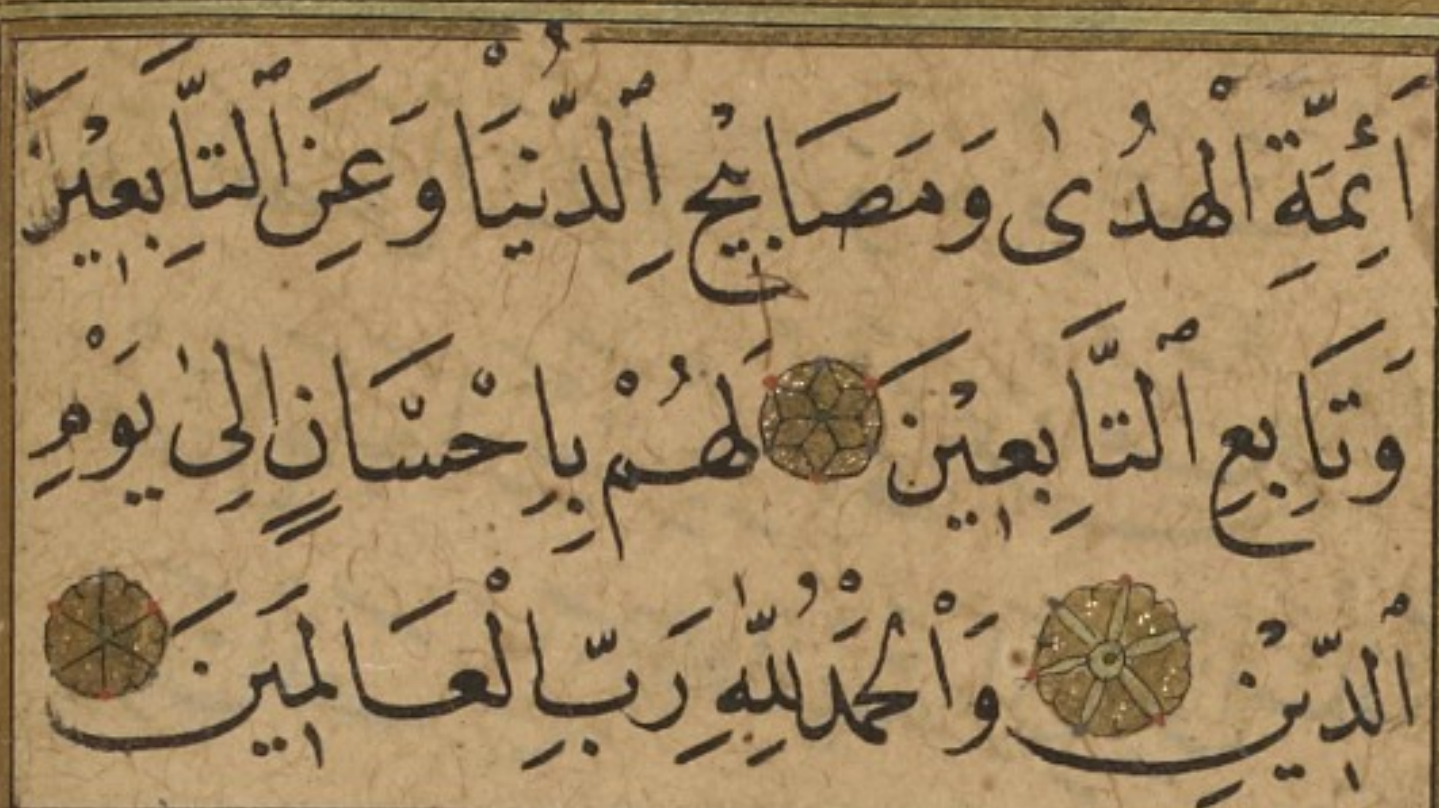 أَئِمَّةِ الْهُدٰى وَمَصَابِيْحِ ٱلدُّنْيَا وَعَنِ ٱلتَّابِعِيْنَ
وَتَابِعِ ٱلتَّابِعِيْنَ لَهُمْ بِاِحْسَانٍ اِلٰى يَوْمِ
ٱلدِّيْنِ وَٱلْحَمْدُ لِلّٰهِ رَبِّ الْعَالَمِيْنَ